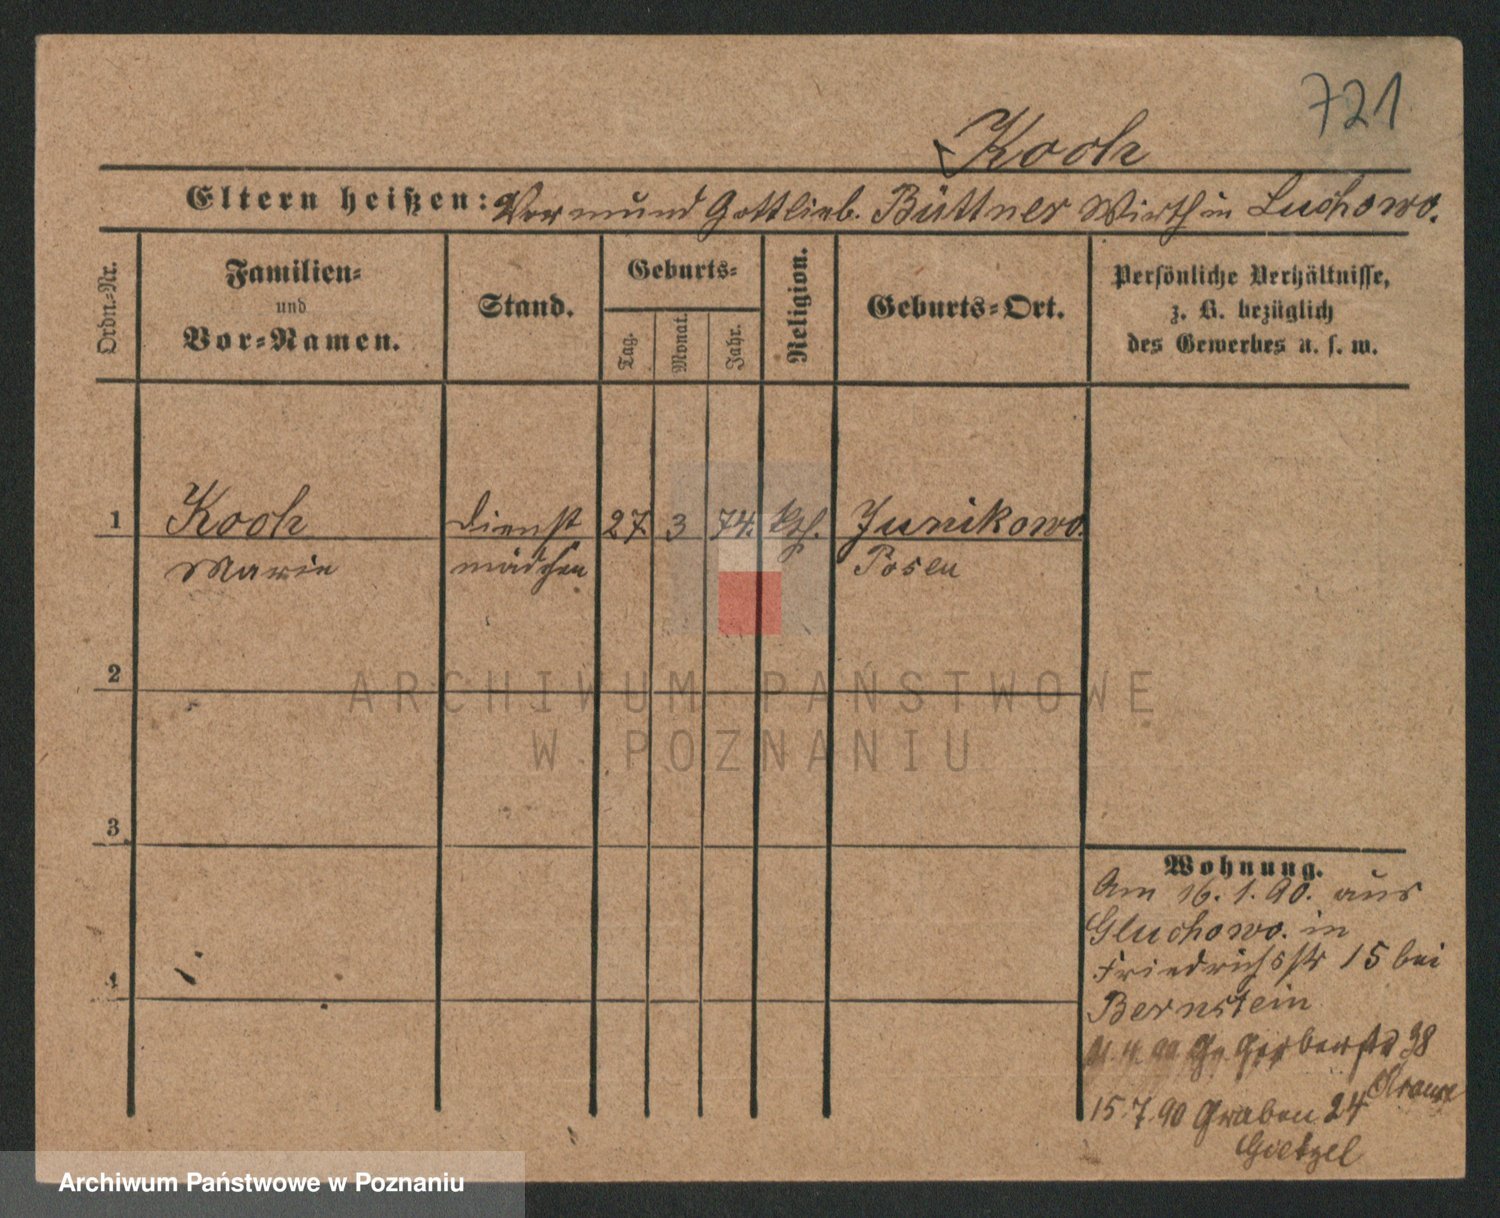 721
Koch
Eltern heißen: Vormund Gottlieb Büttner Wirth in Luchowo.
Ordn.-Nr.
Familien-
und
Vor-Namen.
Stand.
Geburts-
Tag.
Monat.
Jahr.
Religion.
Geburts-Ort.
Persönliche Verhältnisse,
z. B. bezüglich
des Gewerbes u. s. w.
1 Koch Dienst 27. 3 74. kth. Junikowo.
Marie mädchen Posen
2
3
4
Wohnung.
Am 16.1.90. aus
Gluchowo. in
Friedrichsstr 15 bei
Bernstein
Gr. Gerberstr 38
Krause
15.7.90 Graben 24
Goetzel
ARCHIWUM PAŃSTWOWE
W POZNANIU
Archiwum Państwowe w Poznaniu